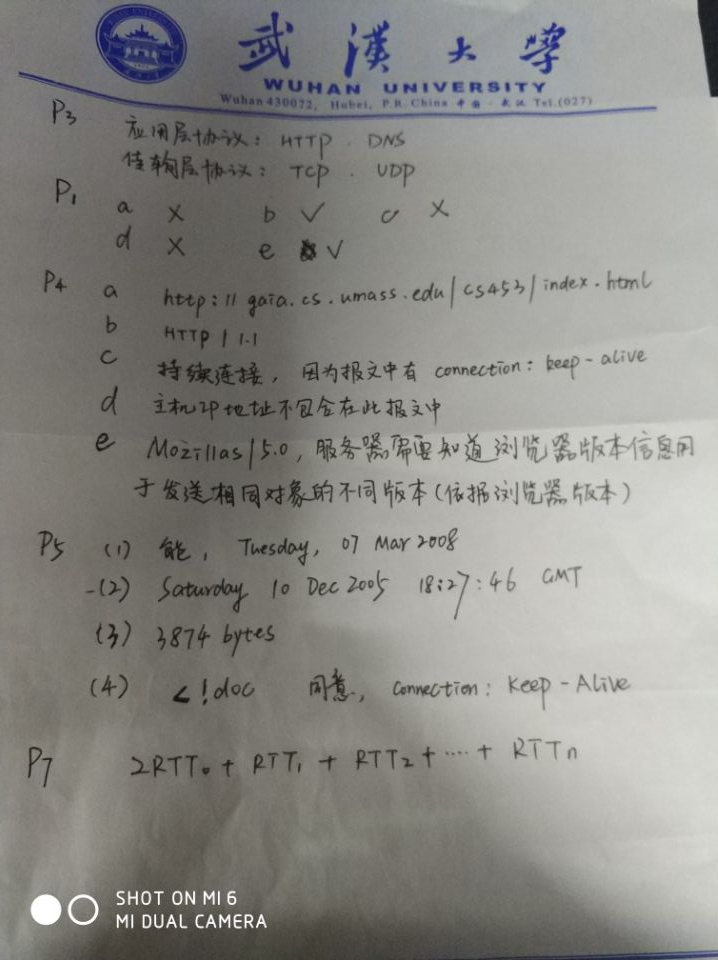 武漢大学
WUHAN UNIVERSITY
Wuhan 430072, Hubei, P.R. China 中国·武汉 Tel.(027)
P3 应用层协议: HTTP . DNS
传输层协议: TCP . UDP
P1 a × b √ c ×
d × e √
P4 a http://gaia.cs.umass.edu/cs453/index.html
b HTTP/1.1
c 持续连接, 因为报文中有 connection: keep-alive
d 主机IP地址不包含在此报文中
e Mozillas/5.0, 服务器需要知道浏览器版本信息用
于发送相同对象的不同版本(依据浏览器版本)
P5 (1) 能, Tuesday, 07 Mar 2008
-(2) Saturday 10 Dec 2005 18:27:46 GMT
(3) 3874 bytes
(4) <!doc 同意, Connection: Keep-Alive
P7 2RTT₀ + RTT₁ + RTT₂ + ···· + RTTn
SHOT ON MI 6
MI DUAL CAMERA